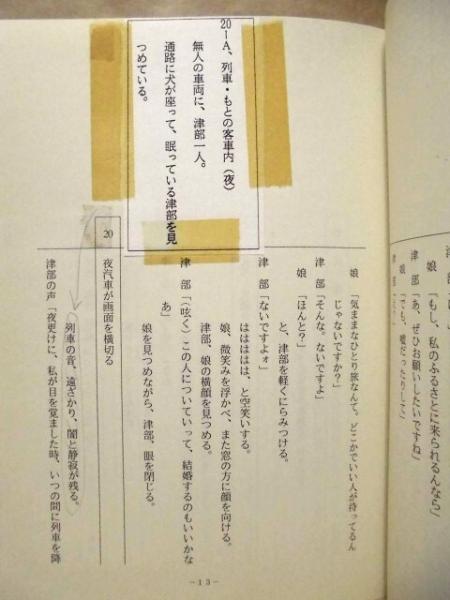 娘「もし、私のふるさとに来られるんなら」
津　部「あ、ぜひお願いしたいですね」
娘「でも、嘘だったりして」
20-A、列車・もとの客車内（夜）
無人の車両に、津部一人。
通路に犬が座って、眠っている津部を見
つめている。
娘「気ままなひとり旅なんて。どこかでいい人が待ってるん
じゃないですか？」
津　部「そんな。ないですよ」
娘「ほんと？」
と、津部を軽くにらみつける。
津　部「ないですよォ」
はははははは、と空笑いする。
娘、微笑みを浮かべ、また窓の方に顔を向ける。
津部、娘の横顔を見つめる。
津　部「（呟く）この人についていって、結婚するのもいいかな
あ」
娘を見つめながら、津部、眼を閉じる。
20　夜汽車が画面を横切る
列車の音、遠ざかり、闇と静寂が残る。
津部の声「夜更けに、私が目を覚ました時、いつの間に列車を降
－13－